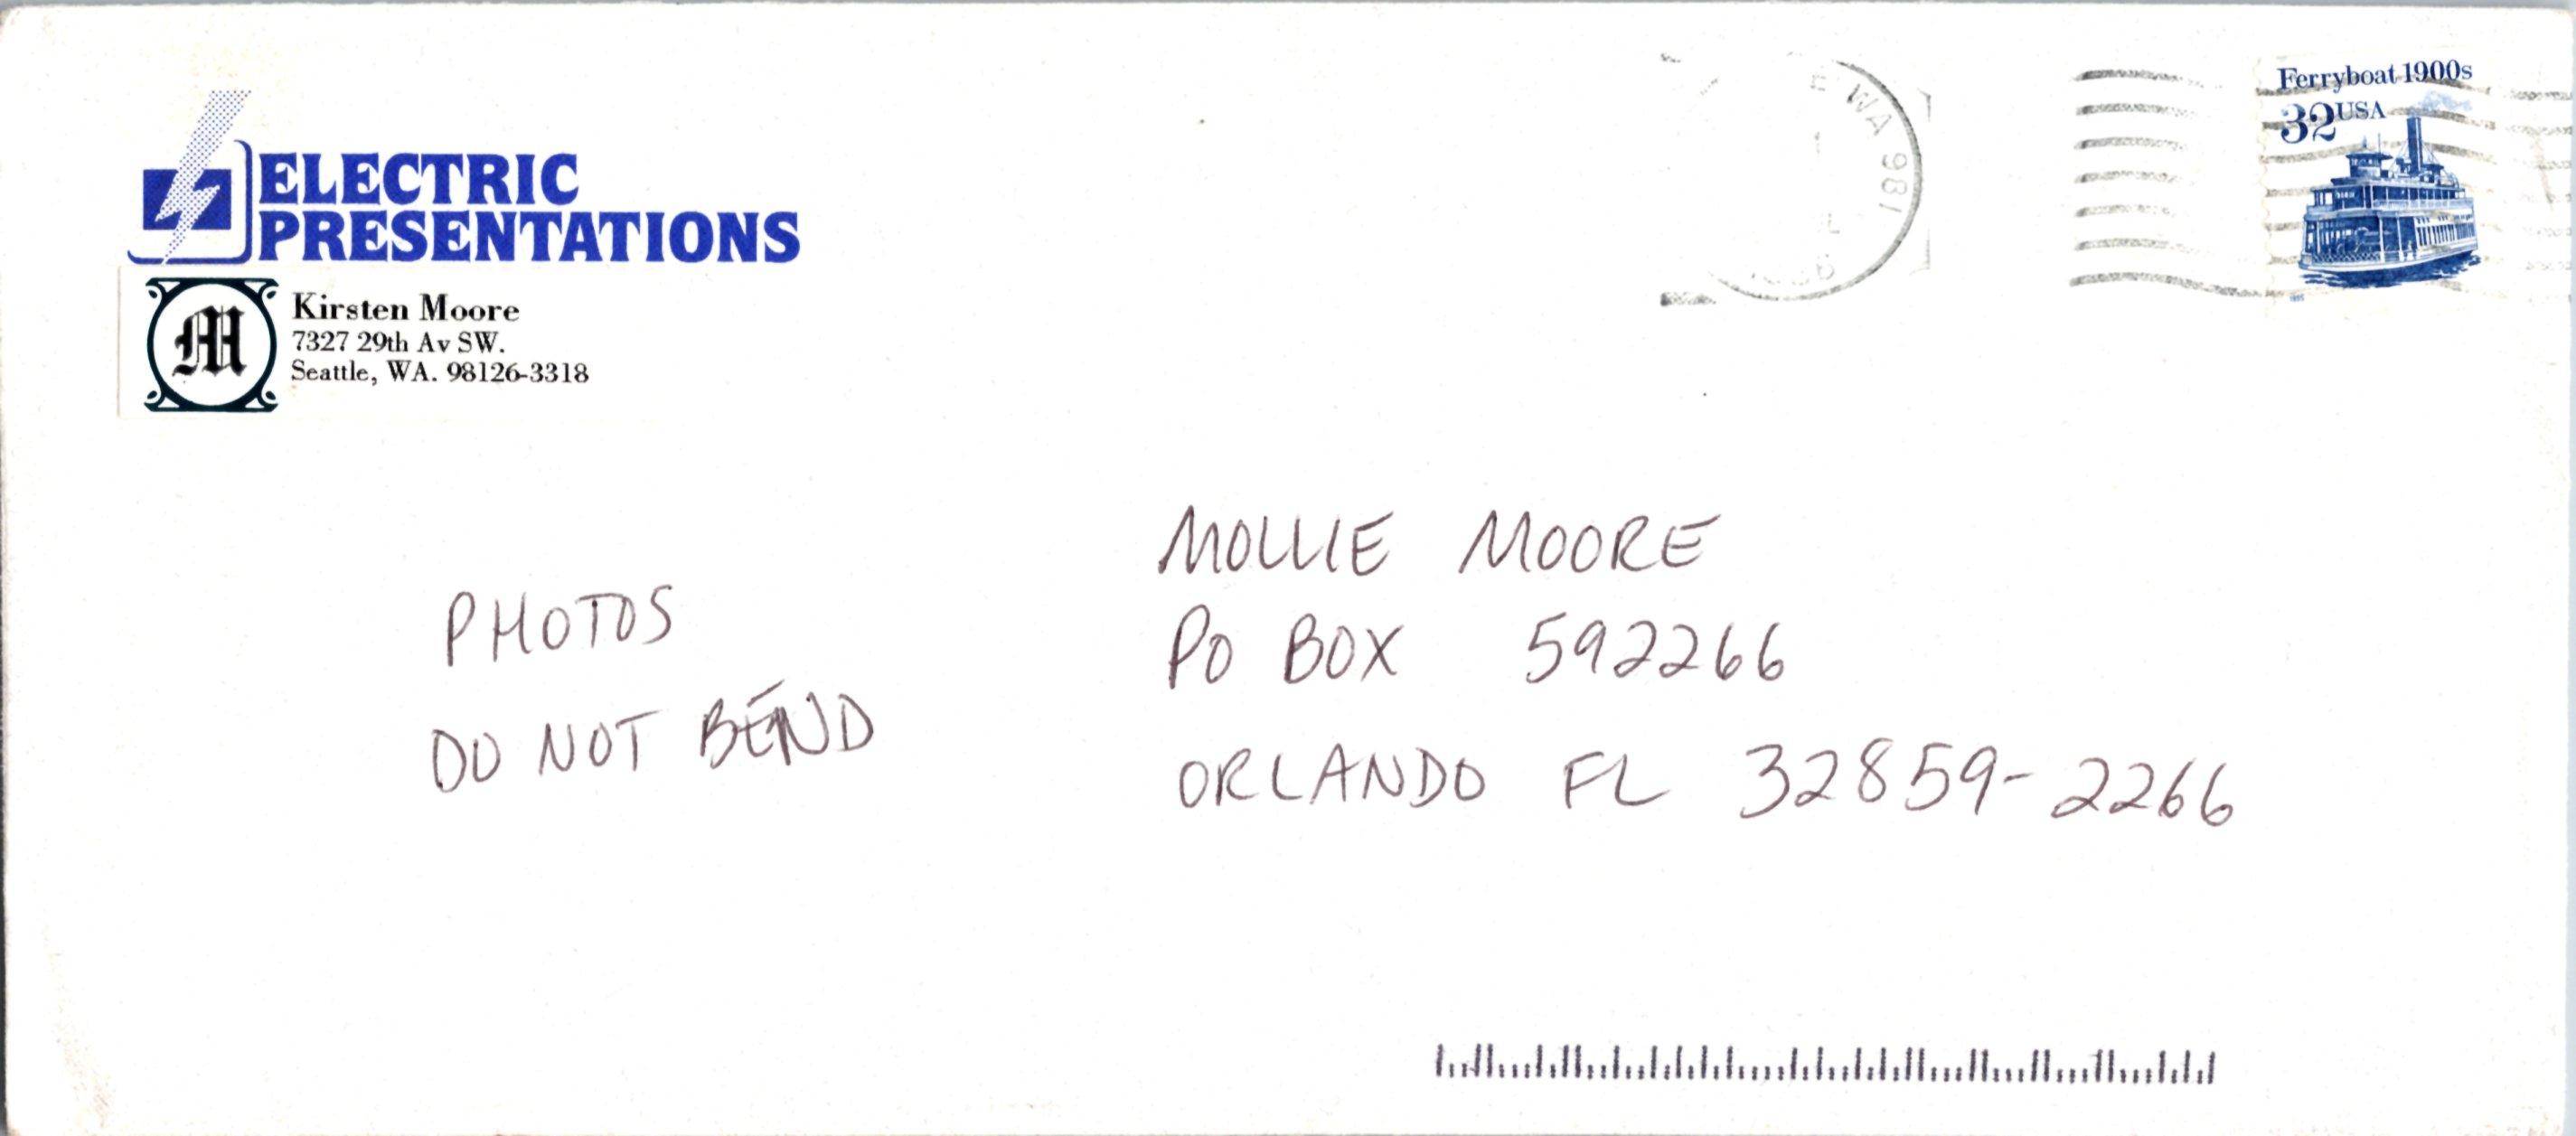 ELECTRIC
PRESENTATIONS
M
Kirsten Moore
7327 29th Av SW.
Seattle, WA. 98126-3318
E WA 981
Ferryboat 1900s
32 USA
1995
MOLLIE MOORE
PO BOX 592266
ORLANDO FL 32859-2266
PHOTOS
DO NOT BEND